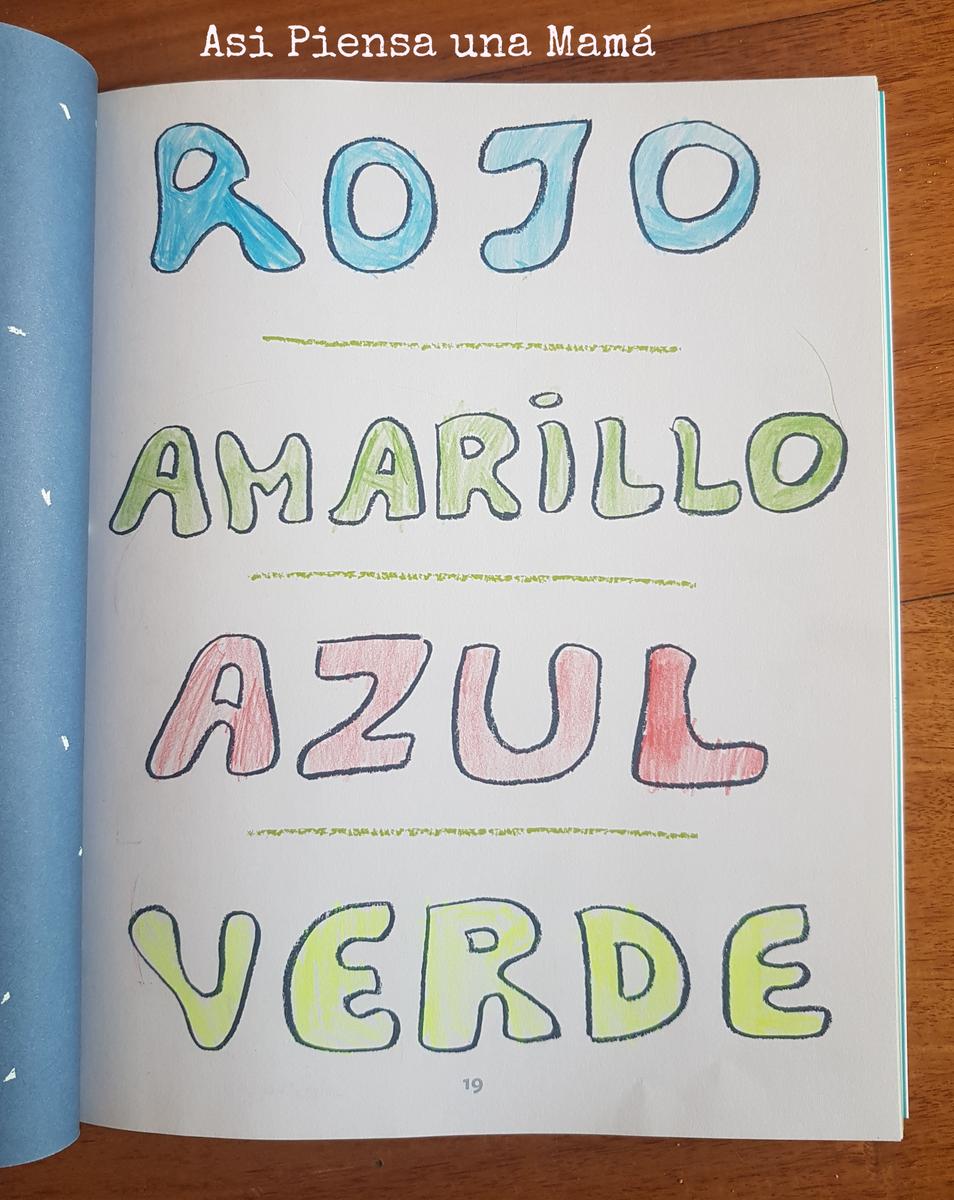 Asi Piensa una Mamá
ROJO
AMARiLLO
AZUL
VERDE
19